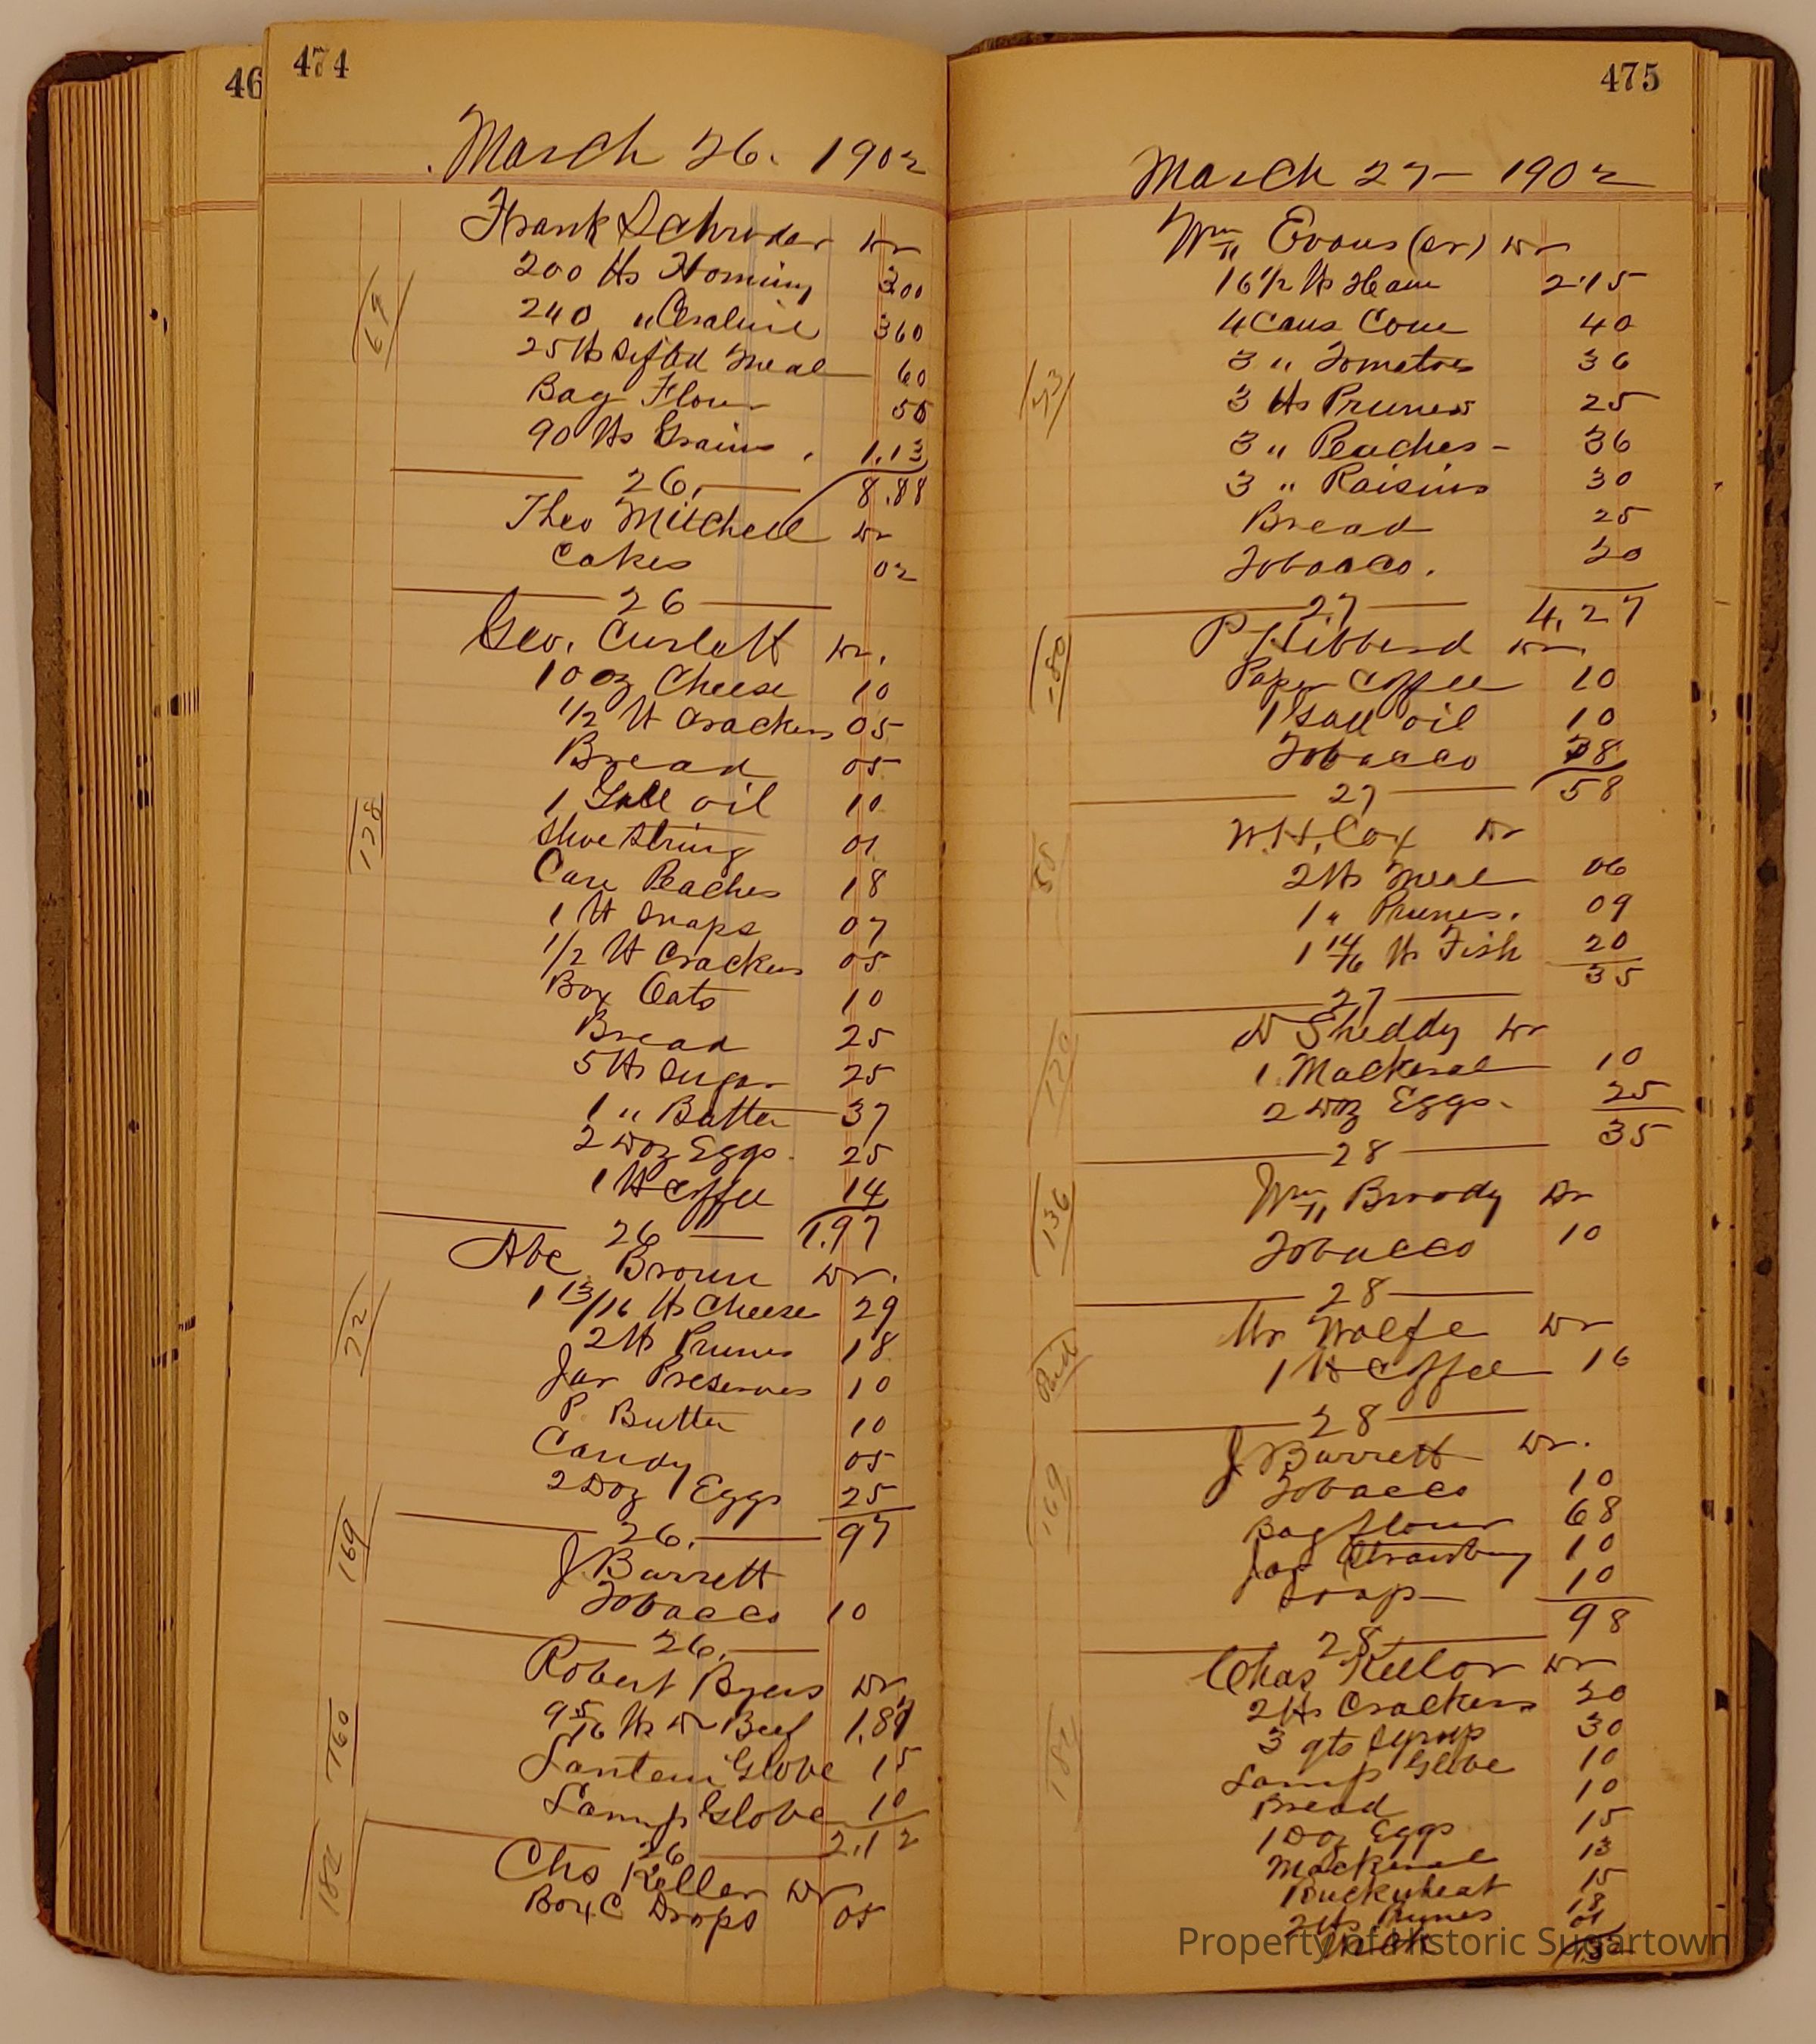 46
474
March 26. 1902
Frank Schrader Dr
69
200 lbs Hominy 300
240 " Cealine 360
25 lbs Sifted Meal 60
Bag Flour 55
90 lbs Grains . 1.13
26. 8.88
Theo Mitchell Dr
Cakes 02
26
Geo. Curlett Dr.
128
10 oz Cheese 10
1/2 lb Crackers 05
Bread 05
1 Gall oil 10
Shoe String 01
Can Peaches 18
1 lb Snaps 07
1/2 lb Crackers 05
Box Oats 10
Bread 25
5 lbs Sugar 25
1 " Butter 37
2 Doz Eggs. 25
1 lb Coffee 14
26 1.97
Abe Brown Dr.
72
1 13/16 lbs Cheese 29
2 lbs Prunes 18
Jar Preserves 10
P. Butter 10
Candy 05
2 Doz Eggs 25
26. 97
J. Barrett
169
Tobacco 10
26.
Robert Byers Dr.
160
9 5/16 lbs Dr Beef 1.87
Lantern Globe 15
Lamp Globe 10
26 2.12
Chs Keller Dr
182
Box C Drops 05
475
March 27 - 1902
Wm Evans (cr) Dr
16 1/2 lbs Ham 2.15
4 Cans Corn 40
3 " Tomatoes 36
3 lbs Prunes 25
3 " Peaches - 36
3 " Raisins 30
Bread 25
Tobacco. 20
27 4.27
P Hibberd Dr.
180
Paper Coffee 10
1 Gall oil 10
Tobacco 38
27 58
W.H. Cox Dr
58
2 lbs Meal 06
1 " Prunes. 09
1 14/16 lbs Fish 20
35
27
D Sheddy Dr
120
1 Mackeral 10
2 Doz Eggs. 25
35
28
Wm Broody Dr
136
Tobacco 10
28
Mr Wolfe Dr
Paid
1 lb Coffee 16
28
J Barrett Dr.
169
Tobacco 10
Bag flour 68
Jar Strawbury 10
Soap 10
28 98
Chas Keelor Dr
182
2 lbs Crackers 20
3 qts Syrup 30
Lamp Globe 10
Bread 10
1 Doz Eggs 15
Mackeral 13
Buckwheat 15
2 lbs Prunes 18
Property of Historic Sugartown